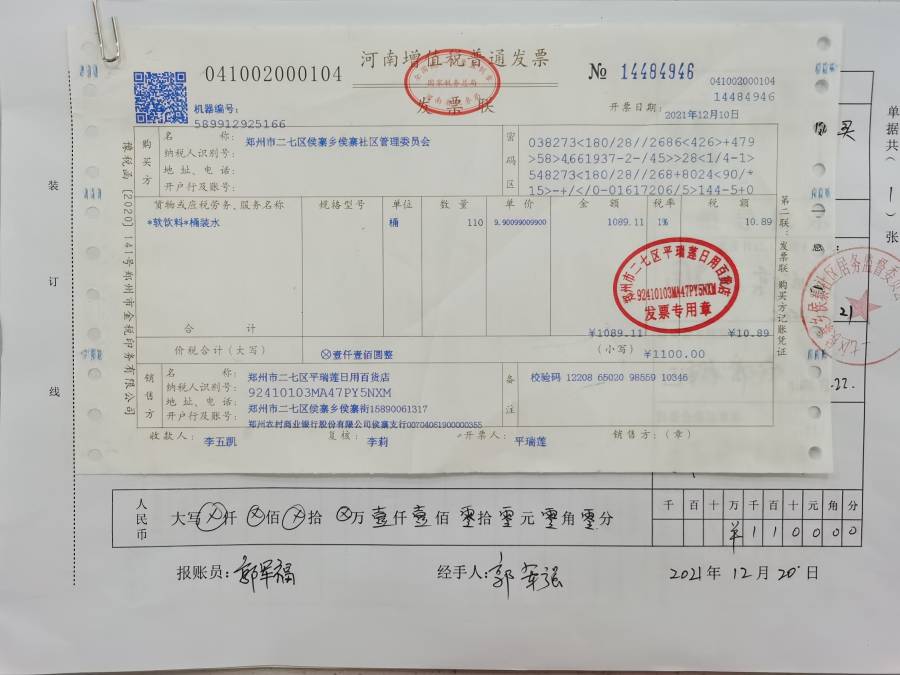 河南增值税普通发票
发票联
041002000104
№ 14484946
041002000104
14484946
机器编号:
589912925166
开票日期:
2021年12月10日
购买方
名称:
郑州市二七区侯寨乡侯寨社区管理委员会
纳税人识别号:
地址、电话:
开户行及账号:
密码区
038273<180/28//2686<426>+479
>58>4661937-2-/45>>28<1/4-1>
548273<180/28//268+8024<90/*
15>-+/</0-01617206/5>144-5+0
货物或应税劳务、服务名称 规格型号 单位 数量 单价 金额 税率 税额
*软饮料*桶装水 桶 110 9.90099009900 1089.11 1% 10.89
合计 ¥1089.11 ¥10.89
价税合计(大写) ⊗壹仟壹佰圆整 (小写) ¥1100.00
销售方
名称:
郑州市二七区平瑞莲日用百货店
纳税人识别号:
92410103MA47PY5NXM
地址、电话:
郑州市二七区侯寨乡侯寨街15890061317
开户行及账号:
郑州农村商业银行股份有限公司侯寨支行00704061900000355
备注
校验码 12208 65020 98559 10346
收款人: 李五凯 复核: 李莉 开票人: 平瑞莲 销售方:(章)
豫税函[2020]141号郑州市金税印务有限公司
第二联:发票联 购买方记账凭证
郑州市二七区平瑞莲日用百货店
92410103MA47PY5NXM
发票专用章
国家税务总局
装
订
线
单据共(一)张
买
21
.22.
人民币
大写⊗仟⊗佰⊗拾⊗万壹仟壹佰零拾零元零角零分
千 百 十 万 千 百 十 元 角 分
¥ 1 1 0 0 0 0
报账员: 郭军福 经手人: 郭军强 2021年12月20日